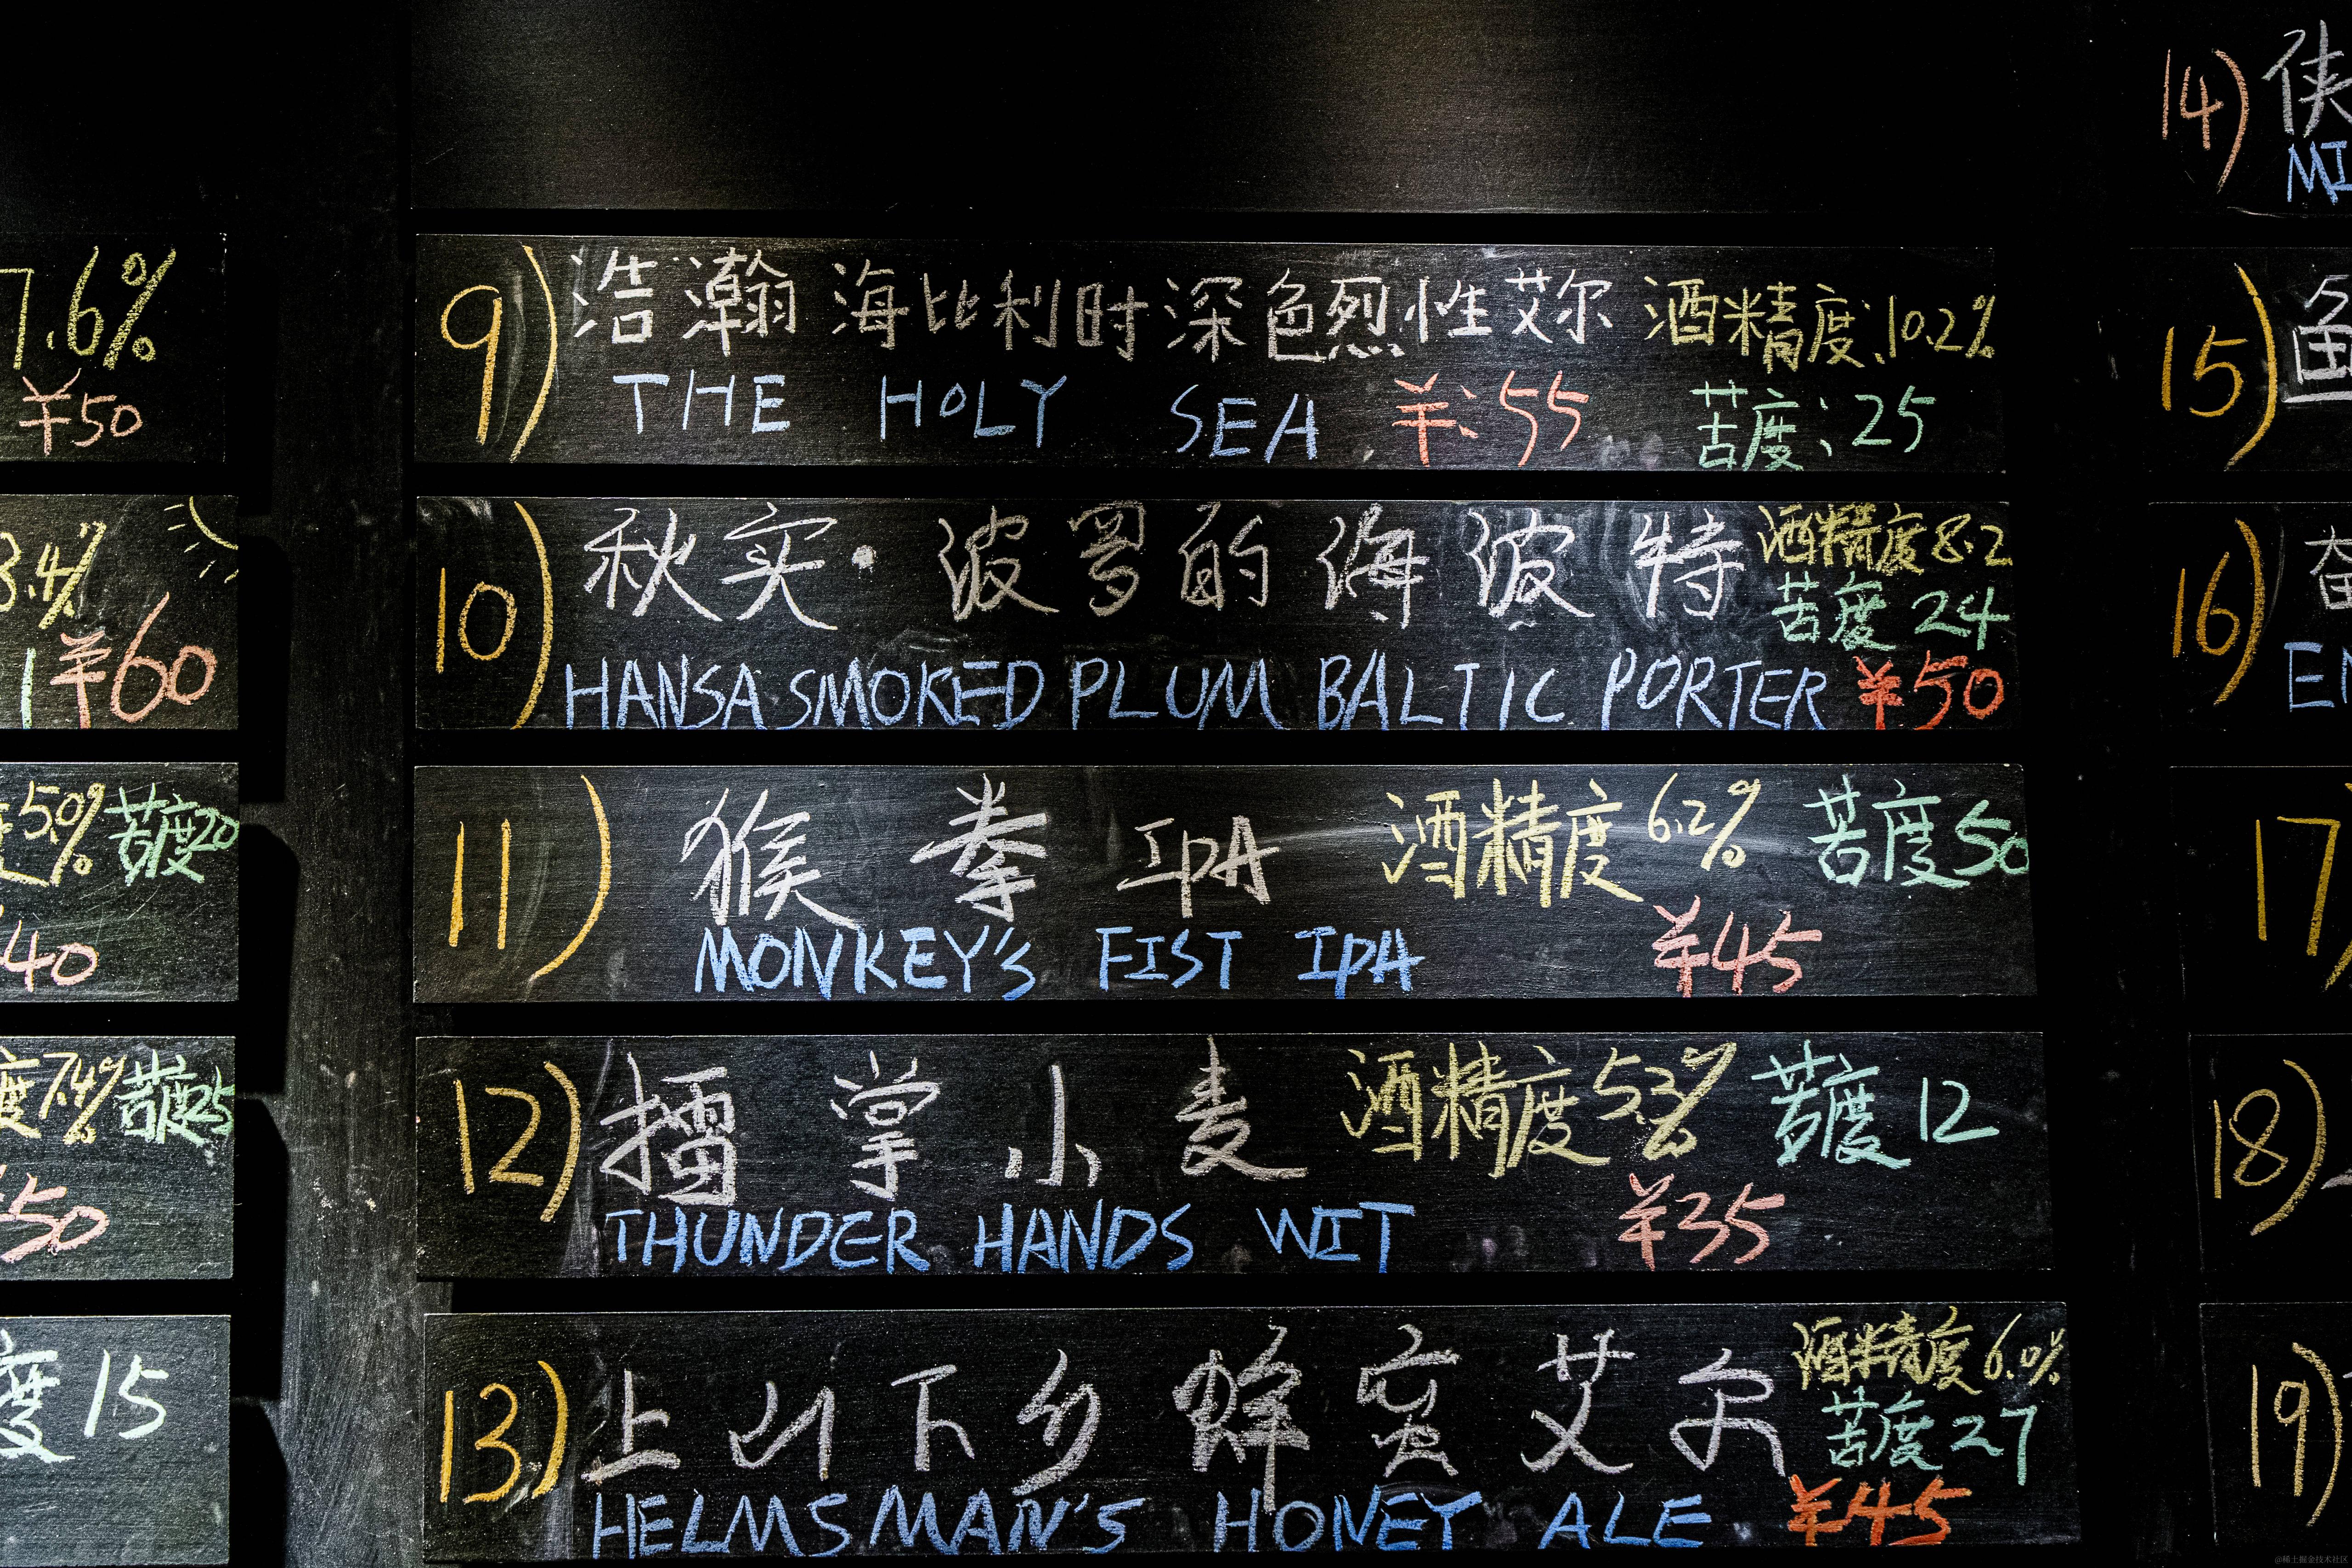 7.6%
¥50
3.4%
1 ¥60
度5.0% 苦度20
¥40
度7.4% 苦度25
¥50
度15
9) 浩瀚海比利时深色烈性艾尔 酒精度:10.2%
THE HOLY SEA ¥:55 苦度:25
10) 秋实·波罗的海波特 酒精度8.2
苦度 24
HANSA SMOKED PLUM BALTIC PORTER ¥50
11) 猴拳IPA 酒精度6.2% 苦度50
MONKEY'S FIST IPA ¥45
12) 擂掌小麦 酒精度5.3% 苦度12
THUNDER HANDS WIT ¥35
13) 上山下乡蜂蜜艾尔 酒精度6.0%
苦度27
HELMSMAN'S HONEY ALE ¥45
14) 侠
MI
15) 鱼
16)
EN
17)
18)
19)
@稀土掘金技术社区